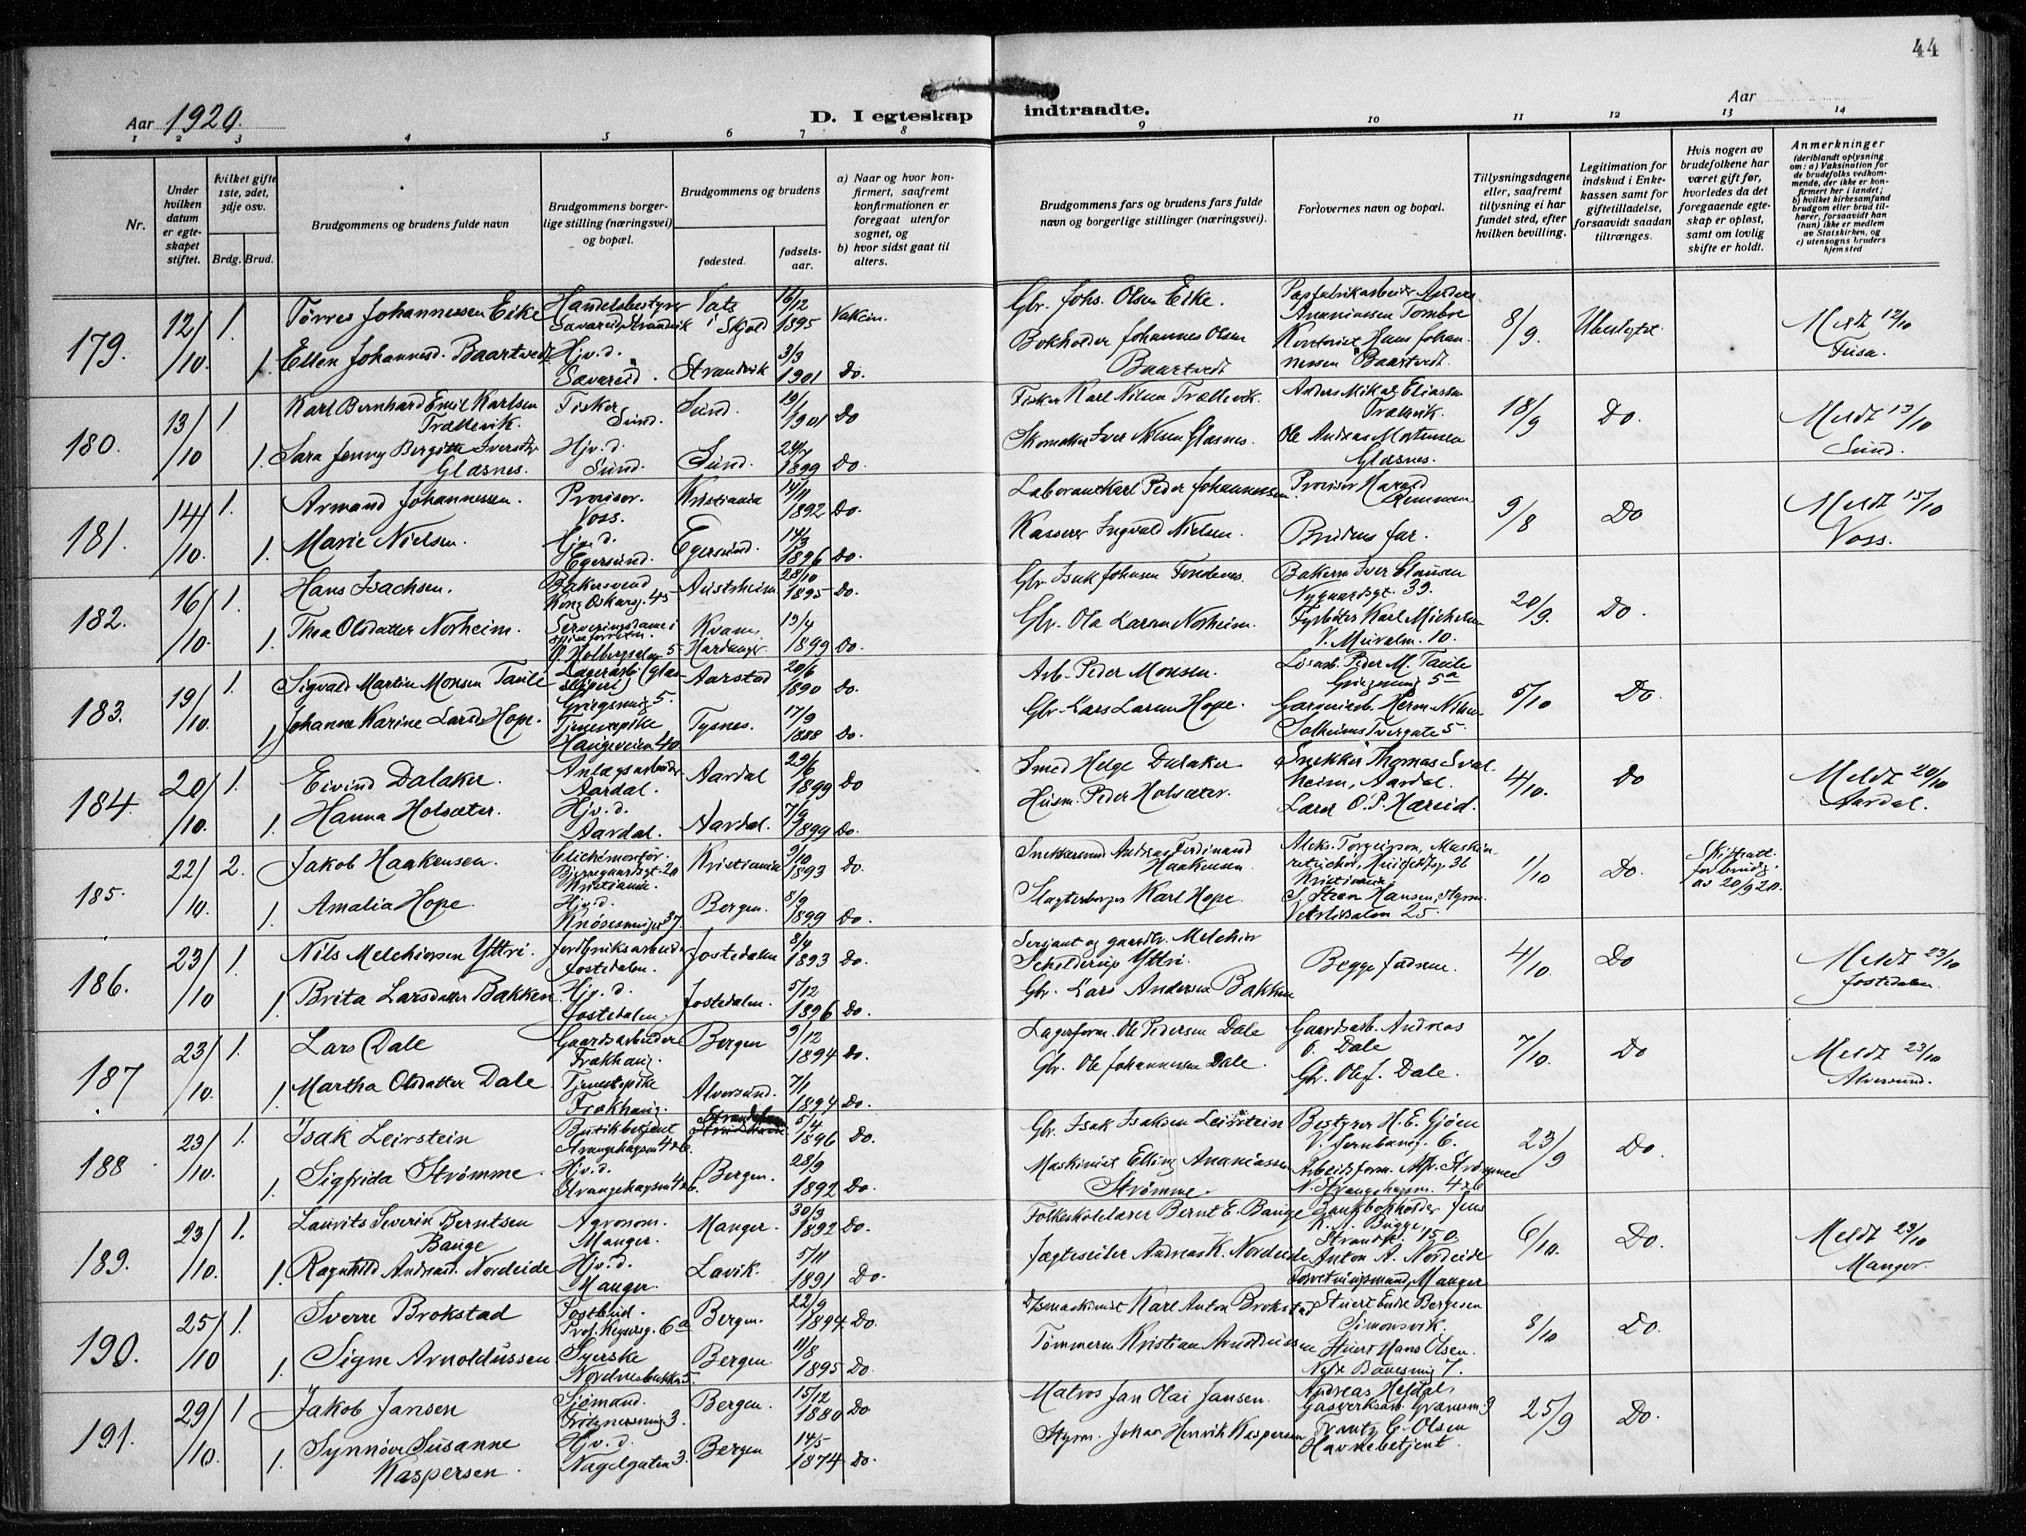 44
Aar 1920.
D. I egteskap indtraadte.
Aar
1 2 3 4 5 6 7 8 9 10 11 12 13 14
Nr.
Under hvilken datum er egteskapet stiftet.
hvilket gifte 1ste, 2det, 3dje osv.
Brdg. Brud.
Brudgommens og brudens fulde navn
Brudgommens borgerlige stilling (næringsvei) og bopæl.
Brudgommens og brudens
fødested.
fødselsaar.
a) Naar og hvor konfirmert, saafremt konfirmationen er foregaat utenfor sognet, og
b) hvor sidst gaat til alters.
Brudgommens fars og brudens fars fulde navn og borgerlige stillinger (næringsvei).
Forlovernes navn og bopæl.
Tillysningsdagene eller, saafremt tillysning ei har fundet sted, efter hvilken bevilling.
Legitimation for indskud i Enkekassen samt for giftetilladelse, forsaavidt saadan tiltrænges.
Hvis nogen av brudefolkene har været gift før, hvorledes da det foregaaende egteskap er opløst, samt om lovlig skifte er holdt.
Anmerkninger
(deriblandt oplysning om: a) Vaksination for de brudefolks vedkommende, der ikke er konfirmert her i landet; b) hvilket kirkesamfund brudgom eller brud tilhører, forsaavidt han (hun) ikke er medlem av Statskirken, og c) utensogns bruders hjemsted
179. 12/10. 1. Tørres Johannessen Eike Handelsbestyrer Savareid Strandvik Vats i Skjold 16/12 1895 Vakcin. Gbr. Johs. Olsen Eike. Anders Ananiassen Tombre 8/9. Ubesteget Meldt 12/10 Fusa.
1. Ellen Johannesd. Baartvedt Hjv.d. Savareid. Strandvik 3/3 1901 Do. Bokholder Johannes Olsen Baartvedt Kontorist Hans Johannessen Baartvedt.
180. 13/10 1 Karl Bernhard Emil Karlsen Trællevik. Fisker Sund. Sund. 19/1 1901 Do Fisker Karl Nilsen Trællevik. Anders Mikal Eliassen Trællevik. 18/9 Do. Meldt 13/10 Sund.
1. Sara Jenny Bergitte Iversdtr Glæsnes. Hjv.d. Sund. Sund. 24/7 1899 Do. Skomaker Iver Nilsen Glæsnes. Ole Andreas Mortensen Glæsnes.
181. 14/10. 1. Armand Johannessen. Provisor. Voss. Kristiania 14/11 1892 Do. Laborant Karl Peder Johannessen. Provisor Harald 9/8 Do Meldt 15/10 Voss.
1. Marie Nielsen. Hjv.d. Egersund. Egersund. 14/3 1896 Do. Kasserer Ingvald Nielsen. Brudens far.
182. 16/10. 1. Hans Isachsen. Bakersvend Kong Oskarsg. 45 Austrheim 28/10 1895 Do. Gbr. Isak Johnsen Fondenes. Bakerm. Iver Clausen Nygaardsgt. 33. 20/9. Do.
1. Thea Olsdatter Norheim. Serveringsdame i Ø. Holbergsalm. 5 Kvam Hardanger 13/4 1899 Do. Gbr. Ola Larsen Norheim. Fyrbøter Karl Michelsen V. Muralm. 10.
183. 19/10. 1. Sigvald Martin Monsen Taule Lagerarb. (Glassliperi) Griegsmug 5. Aarstad 20/6 1890 Do. Arb. Peder Monsen. Løsarb. Peder M. Taule Griegsmug 5a 5/10 Do.
1 Johanne Karine Larsd. Hope. Tjenestepike Haugeveien 40 Tysnes. 17/9 1888 Do. Gbr. Lars Larsen Hope. Herm. Nilsen Solheims Tvergate 5.
184. 20/10. 1. Eivind Dalaker Anlægsarbeider Aardal. Aardal 29/6 1899 Do Smed Helge Dalaker Snekker Thomas Svalheim, Aardal. 4/10. Do Meldt 20/10 Aardal.
1. Hanna Holsæter. Hjv.d. Aardal. Aardal. 7/9 1899 Do. Husm. Peder Holsæter. Lærer O. P. Hæreid.
185. 22/10. 2. Jakob Haakensen. Clichemontør. Bjerregaardsgt. 20 Kristiania. Kristiania 9/10 1893 Do. Snekkersvend Andreas Ferdinand Haakensen Aleks. Torgerson, Kristiania 1/10 Do. Skifteatt. for brudg. av 20/9 20.
1. Amalia Hope. Hjv.d. Knøsesmuget 37 Bergen. 8/9 1899 Do. Slagterborger Karl Hope. S. Steen Hansen, Styrm. Vetrlidsalm 25.
186. 23/10 1. Nils Melchiorsen Yttri. Jordbruksarbeider Jostedalen. Jostedalen 8/4 1893 Do. Sersjant og gaardbr. Melchior Scholderup Yttri. Begge fædrene. 4/10. Do Meldt 23/10 Jostedalen.
1. Brita Larsdatter Bakken. Hjv.d. Jostedalen. Jostedalen. 5/12 1896 Do. Gbr. Lars Andersen Bakken
187 23/10. 1. Lars Dale Gaardsarbeider Frækhaug. Bergen 9/12 1894 Do. Lagerform. Ole Pedersen Dale Gaardsarb. Andreas O. Dale 7/10. Do Meldt 23/10 Alversund.
1. Martha Olsdatter Dale. Tjenestepike Frækhaug. Alversund. 7/1 1894 Do. Gbr. Ole Johannessen Dale. Gbr. Ole J. Dale.
188 23/10. 1. Isak Leirstein Butikbetjent Strangehagen 42b. 5/4 1896 Do. Gbr. Isak Isaksen Leirstein Bestyrer H. E. Gjøen V. Jernbaneg. 6. 23/9 Do.
1. Sigfrida Strømme. Hjv.d. Strangehagen 42b. Bergen. 28/9 1892 Do. Maskinist Elling Ananiassen Strømme. Arbeidsform. Alfr. Strømme N. Strangehagen. 42b
189. 23/10. 1. Laurits Severin Berntsen Bauge Agronom. Manger. Manger. 30/3 1892 Do. Folkeskolelærer Bernt E. Bauge Bankbokholder Jens K. A. Bugge, Strandg. 150 6/10. Do. Meldt 23/10 Manger.
1. Ragnhild Andreasd. Nordeide Hjv.d. Manger. Lavik. 5/11 1891 Do. Jægteseiler Andreas K. Nordeide Anton A. Nordeide Forretningsmand, Manger
190. 25/10 1. Sverre Brokstad Postbud. Prof. Keysersg. 6a Bergen. 22/9 1894 Do. Maskinist Karl Anton Brokstad Stuert Endre Bergesen Simonsvik. 8/10 Do.
1. Signe Arnoldussen Syerske Nordnesbakken 5. Bergen. 11/8 1895 Do. Tømmerm. Kristian Arnoldussen Hans Olsen.
191. 29/10. 1 Jakob Jansen Sjømand. Bergen. 15/12 1880 Do. Matros Jan Olai Jansen. Andreas Heldal, Gasverksarb. 25/9 Do.
1. Synnøve Susanne Kaspersen. Hjv.d. Nagelgaten 3. Bergen 14/5 1874 Do. Styrm. Johan Henrik Kaspersen Frantz C. Olsen Havnebetjent.